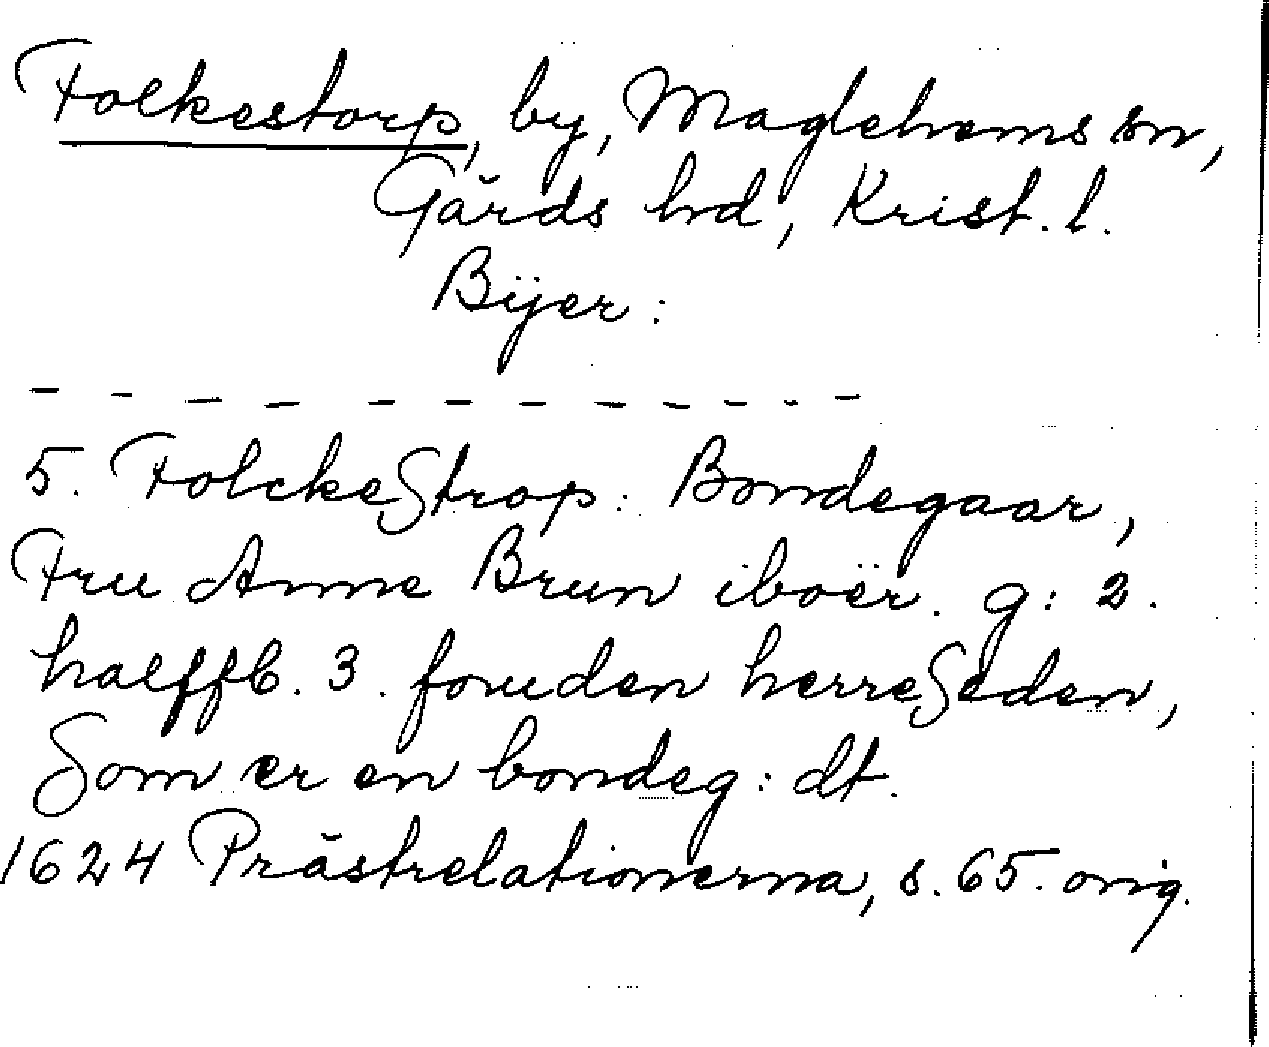 Folkestorp, by, Maglehems sn,
Gärds hd, Krist. l.
Bÿer:
- - - - - - - - - - - -
5. FolckeStrop: Bondegaar,
Fru Anne Brun iboër. g: 2.
halffb. 3. foruden herreSeden,
Som er en bondeg: dt.
1624 Prästrelationerna, s. 65. orig.